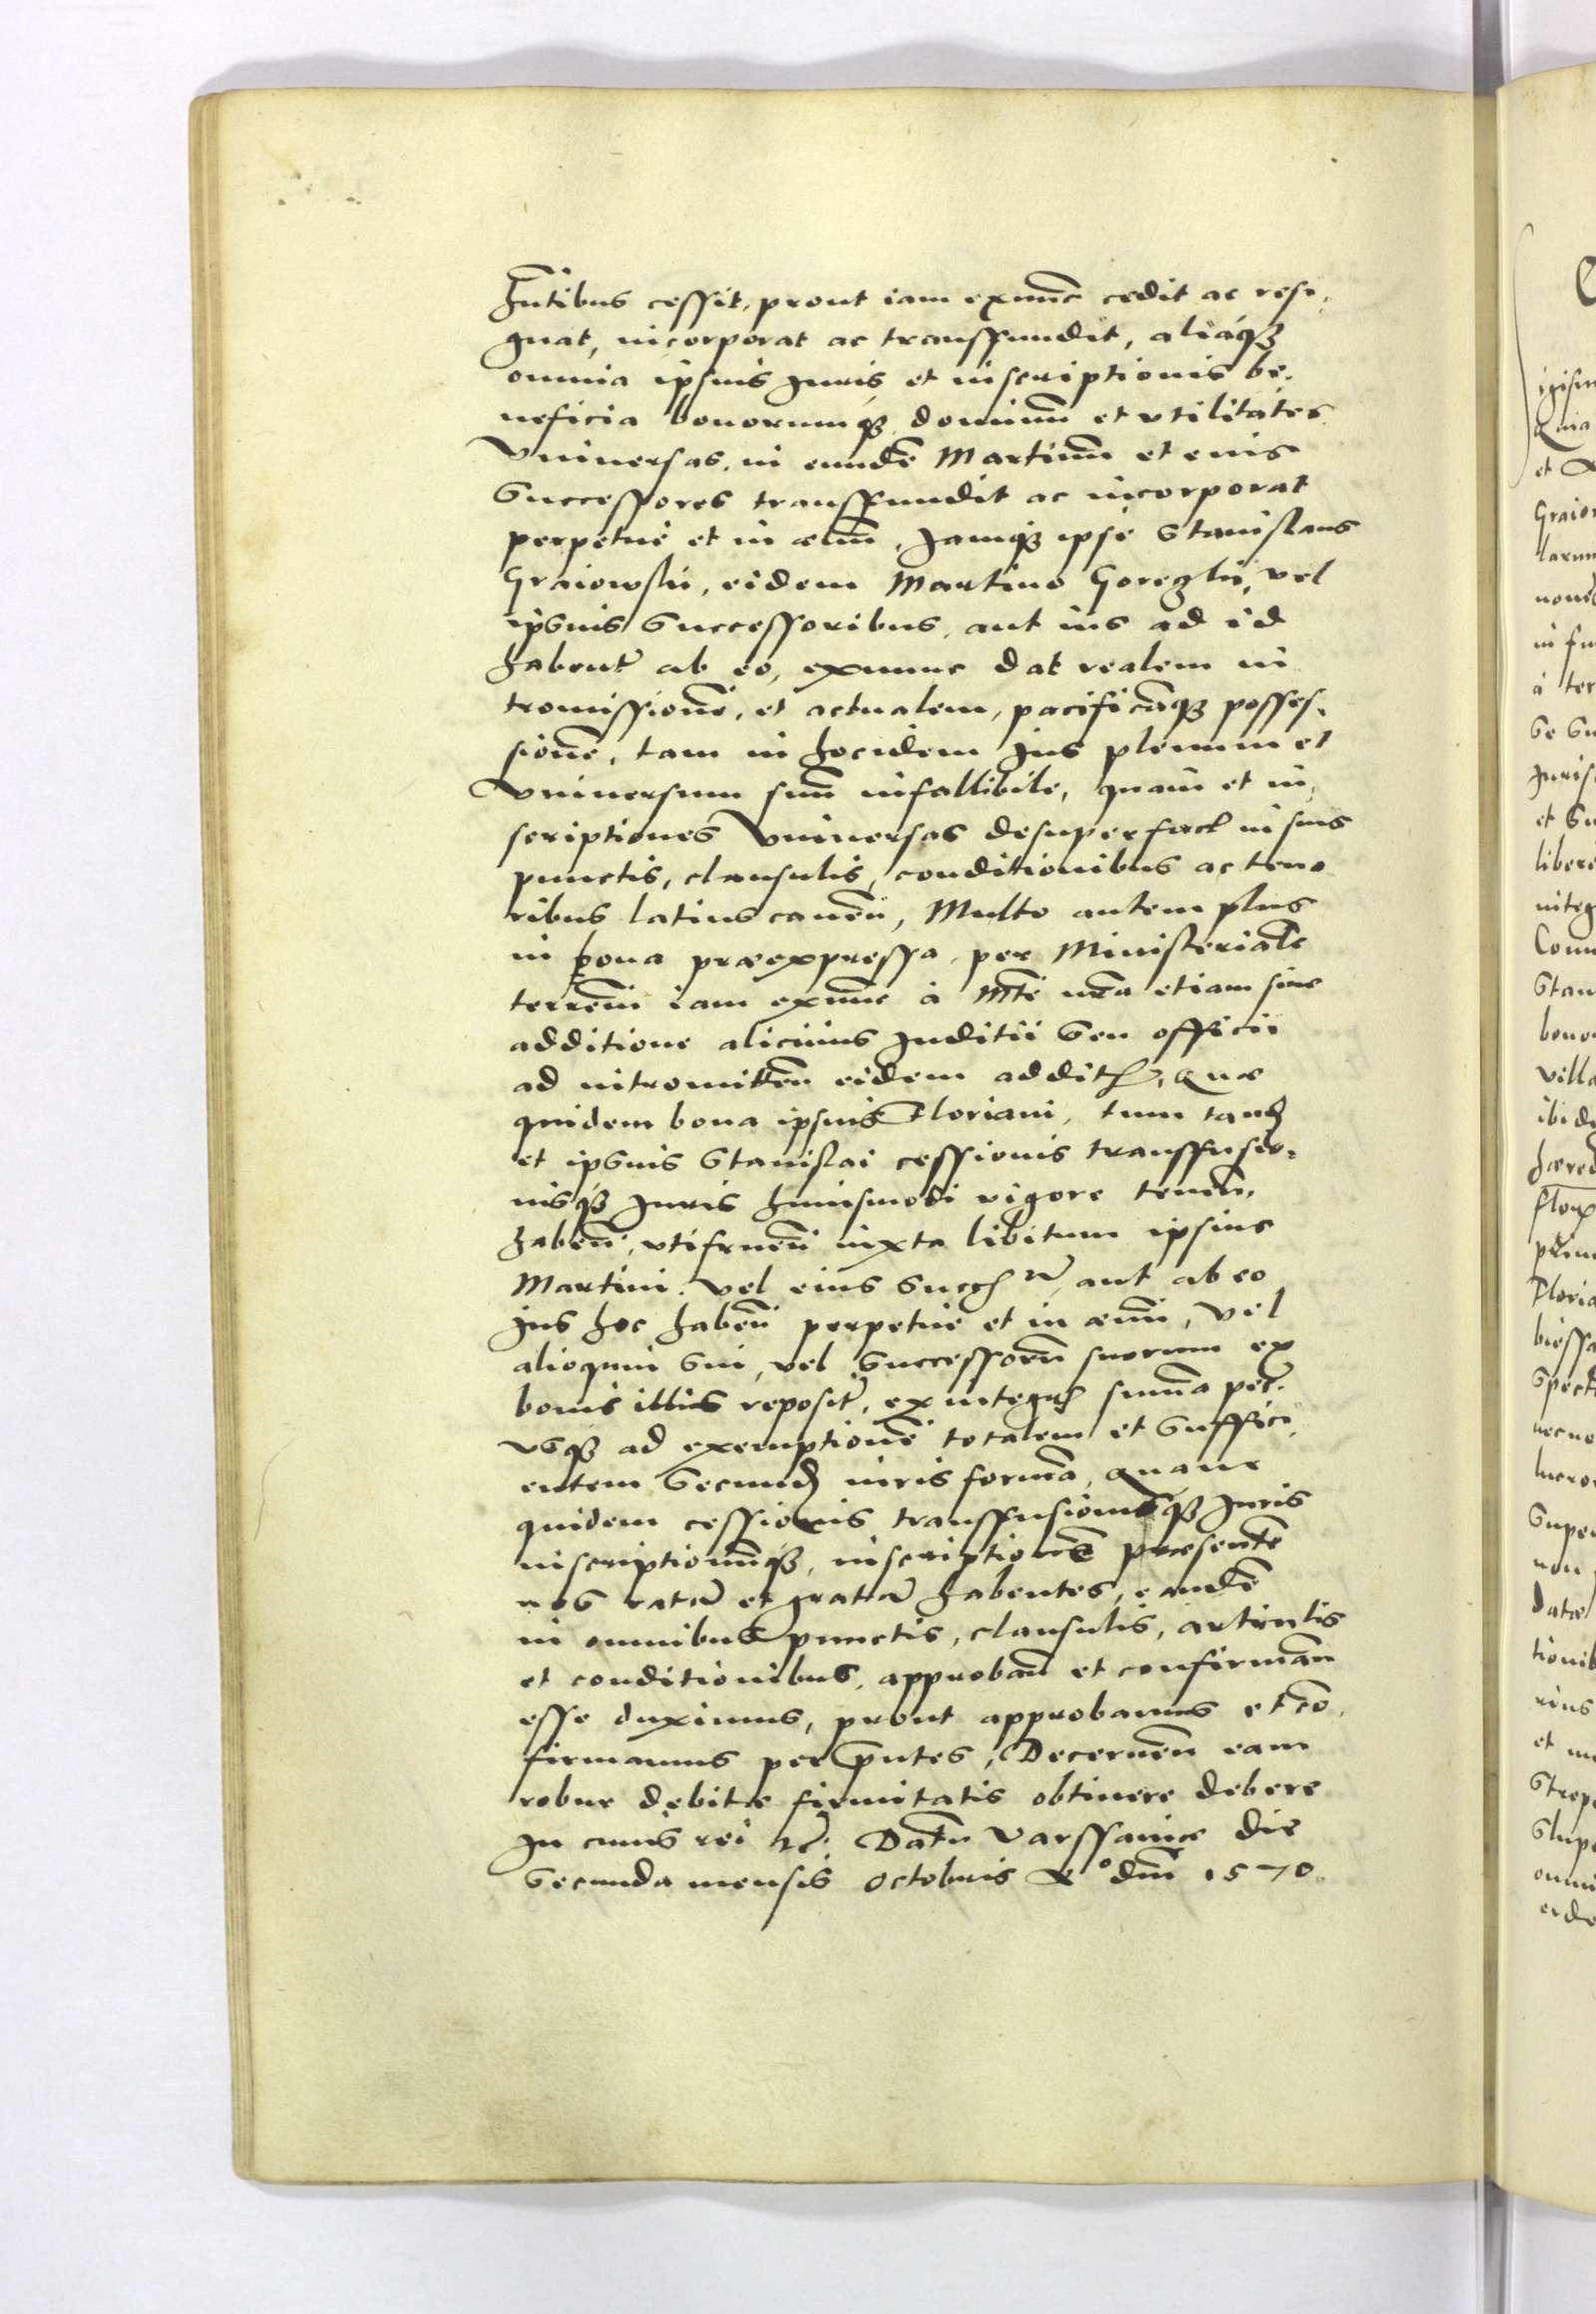 hn̄tibus cessit, prout iam exnunc cedit ac resi-
gnat, incorporat ac transfundit, aliaq₃
omnia ipsius Juris et inscriptionis be-
neficia bonorumq₃ dominiū et vtilitates
Vniuersas, in eundē Martinū et eius
Successores transfundit ac incorporat
perpetue et in aeuū, Jamq₃ ipse Stanislaus
Graiowski, eidem Martino Goreczki, vel
ipsius Successoribus, aut ius ad id
habent̄ ab eo, exnunc dat realem in
tromissionē, et actualem, pacificāq₃ posses-
sionē, tam in hocidem Jus plenum et
Vniuersum suū infallibile, quam et in-
scriptiones Vniuersas desuper fact in suis
punctis, clausulis, conditionibus ac teno
ribus latius canen̄, Multo autem plus
in bona praeexpressa, per Ministerialē
terren̄ iam exnunc à Mte nr̄a etiam sine
additione alicuius Juditii Seu officii
ad intromitten̄ eidem addit, Quae
quidem bona ipsius Floriani, tum tanq
et ipsius Stanislai cessionis transfusio-
nisq₃ Juris huiusmodi vigore tenen̄,
haben̄, vtifruen̄ iuxta libitum ipsius
Martini, vel eius Succ aut ab eo
Jus hoc haben̄ perpetue et in aeuū, vel
alioquin Sui, vel Successorū suorum ex
bonis illius reposit̄, ex integra sum̄a pec̄.
vsq₃ ad exemptionē totalem et Suffici-
entem Secund iuris formā, Quam
quidem cessionis transfusionisq₃ Juris
inscriptionūq₃, inscriptionē praesentē
nos ratā et gratā habentes, eandē
in omnibus punctis, clausulis, articulis
et conditionibus, approban̄ et confirman̄
esse duximus, prout approbamus et cō-
firmamus per pn̄tes, Decernen̄ eam
robur debitae firmitatis obtinere debere
In cuius rei etc̄. Datū Varssaviae die
Secunda mensis Octobris A° dn̄i 1570.